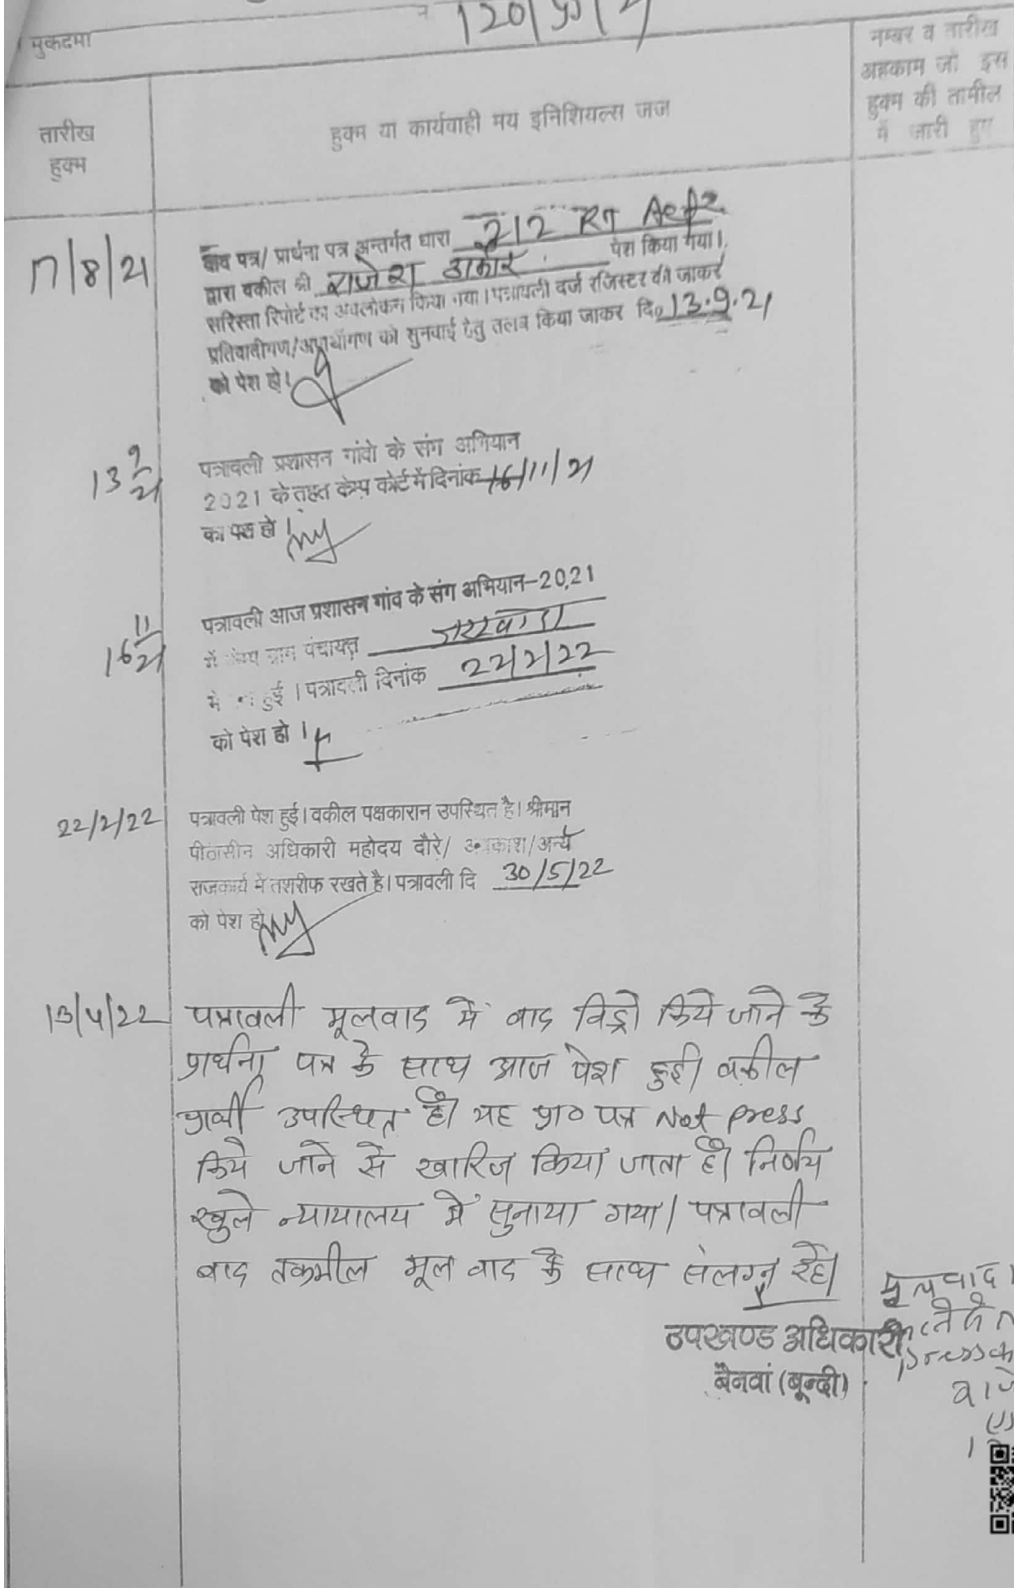 मुकदमा
तारीख
हुक्म
हुक्म या कार्यवाही मय इनिशियल्स जज
नम्बर व तारीख
अहकाम जो इस
हुक्म की तामील
में जारी हुए
17/8/21
वाद पत्र/ प्रार्थना पत्र अन्तर्गत धारा 212 RT Act
द्वारा वकील श्री राजेश पेश किया गया।
सरिस्ता रिपोर्ट का अवलोकन किया गया। पत्रावली दर्ज रजिस्टर की जाकर
प्रतिवादीगण/अप्रार्थीगण को सुनवाई हेतु तलब किया जाकर दि० 13.9.21
को पेश हो।
13 9/21
पत्रावली प्रशासन गांवो के संग अभियान
2021 के तहत केम्प कोर्ट में दिनांक 16/11/21
का पेश हो।
16 11/21
पत्रावली आज प्रशासन गांव के संग अभियान-2021
में केम्प ग्राम पंचायत
में हुई। पत्रावली दिनांक 22/2/22
को पेश हो।
22/2/22
पत्रावली पेश हुई। वकील पक्षकारान उपस्थित है। श्रीमान
पीठासीन अधिकारी महोदय दौरे/ अवकाश/अन्य
राजकार्य में तशरीफ रखते है। पत्रावली दि 30/5/22
को पेश हो
13/4/22
पत्रावली मूलवाद में वाद विड्रो किये जाने के
प्रार्थना पत्र के साथ आज पेश हुई। वकील
प्रार्थी उपस्थित है। यह प्रा० पत्र Not press
किये जाने से खारिज किया जाता है। निर्णय
खुले न्यायालय में सुनाया गया। पत्रावली
बाद तकमील मूल वाद के साथ संलग्न रहे।
उपखण्ड अधिकारी
नैनवां (बून्दी)
मूलवाद